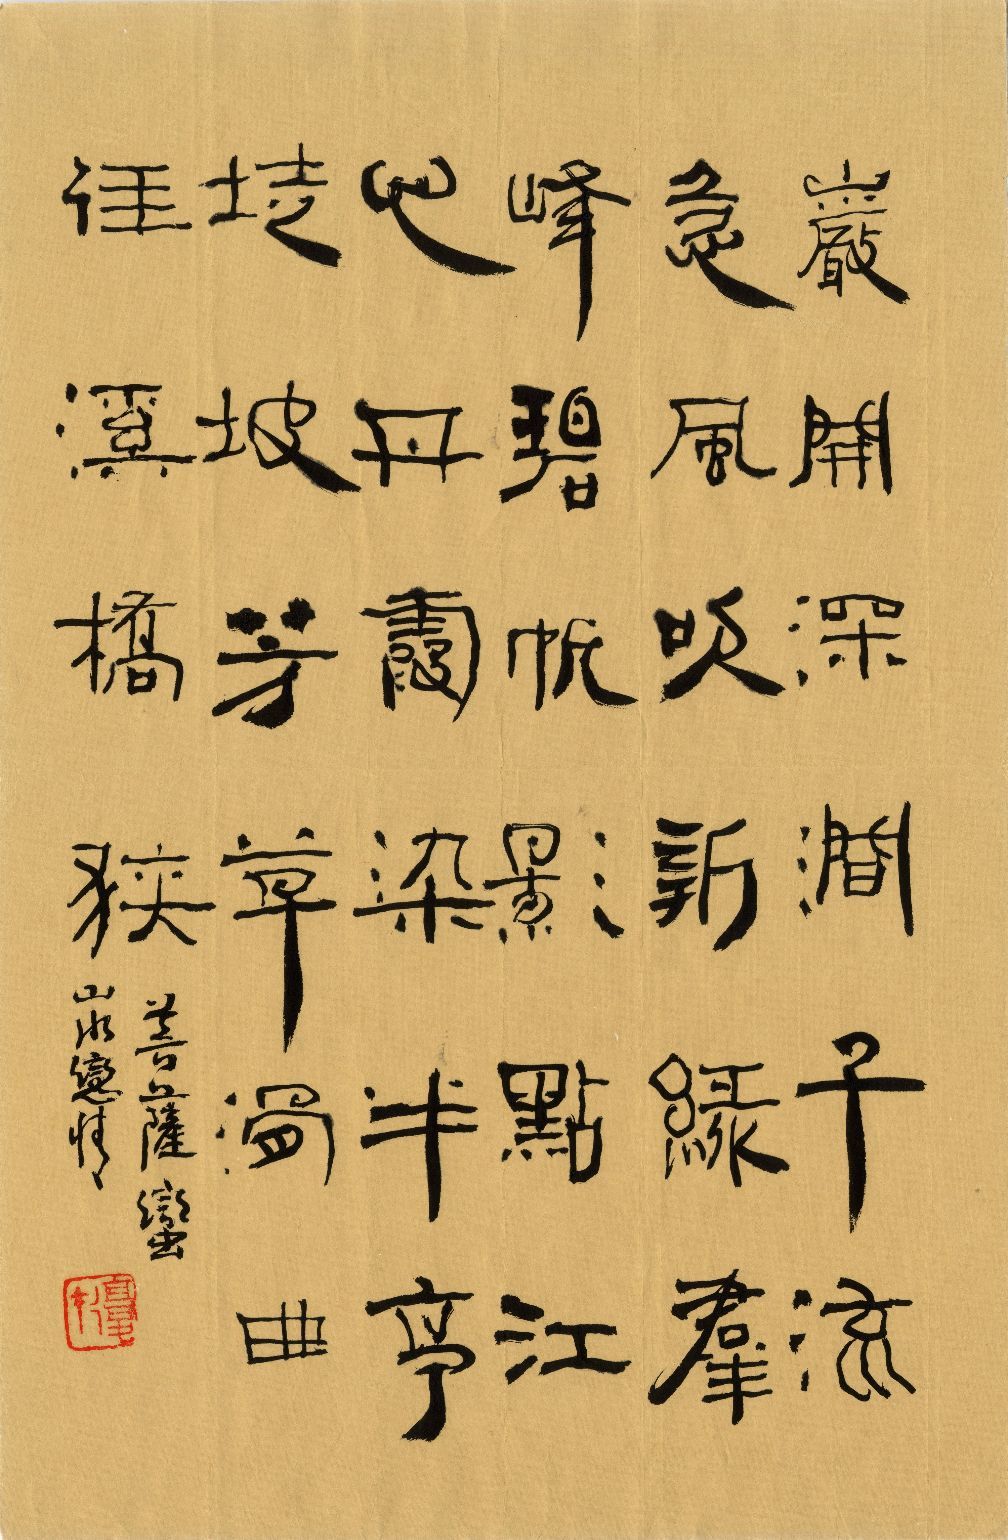 巖開深澗千流
急風吹新綠羣
峰碧帆影點江
心丹霞染半亭
坡芳草曲
徑溪橋狹
菩薩蠻
山水戀情